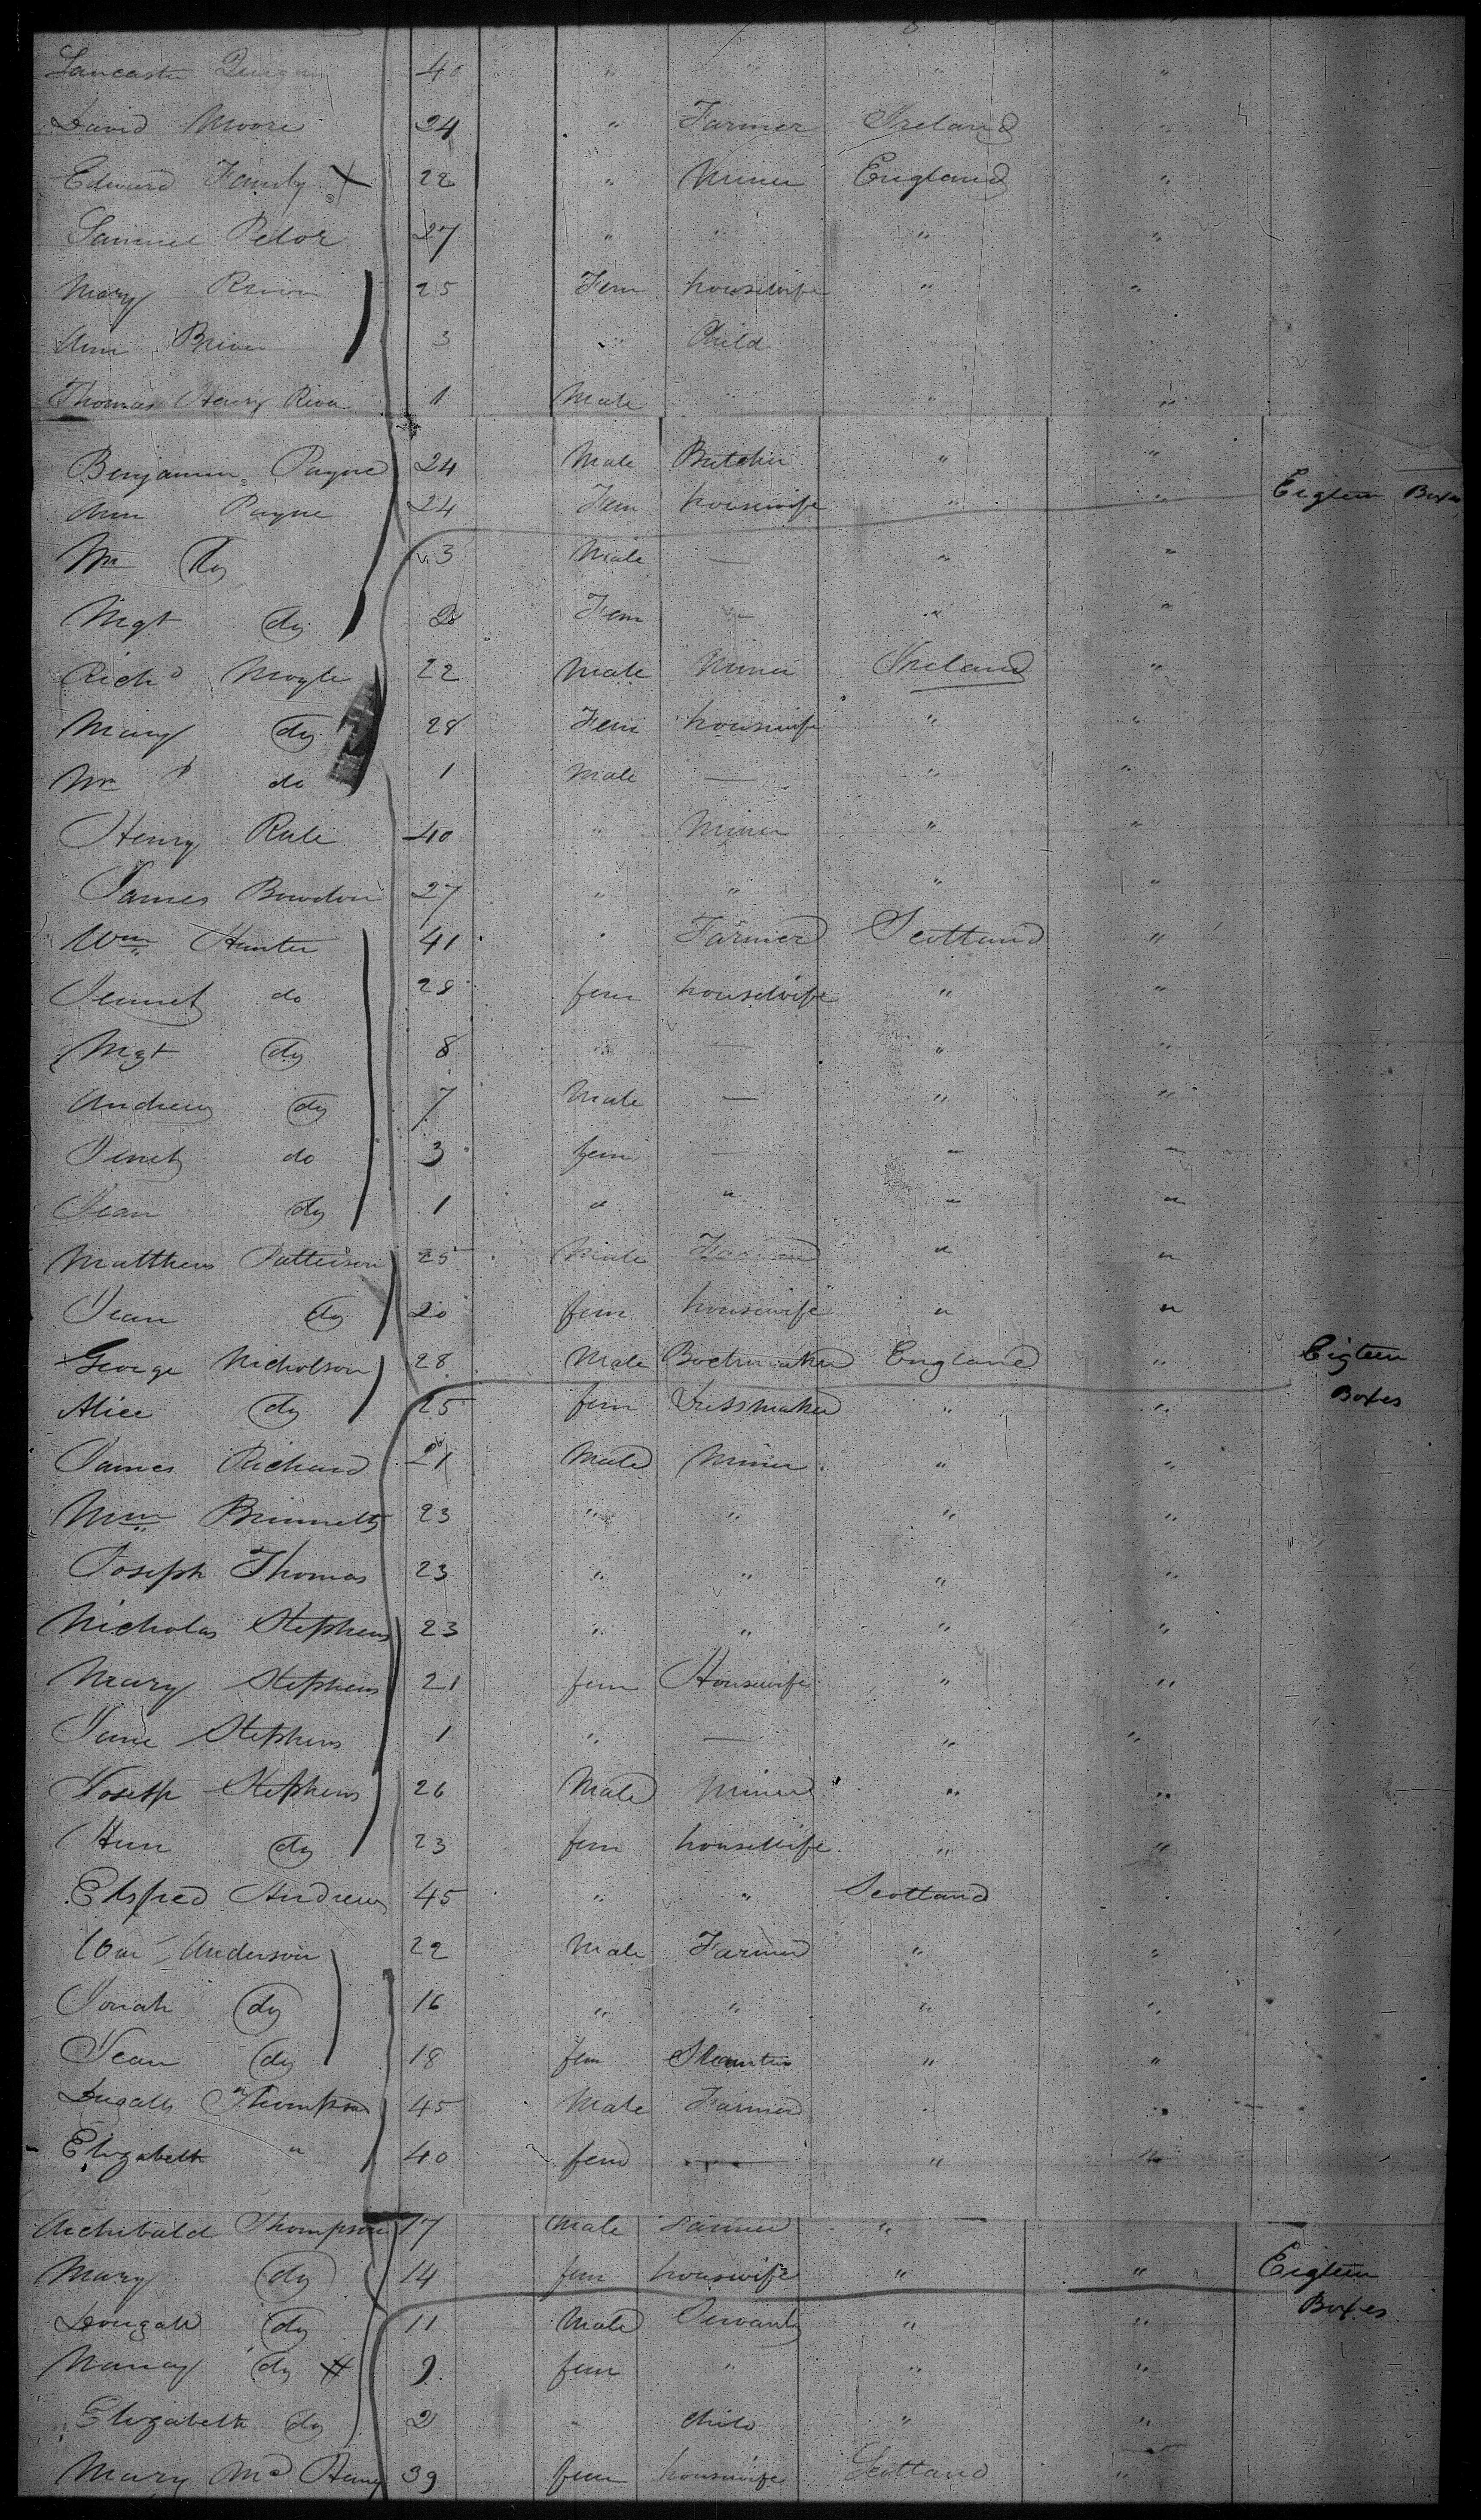 Lancaster 40 " " " "
David Moore 24 " Farmer Ireland "
Edward Family X 22 " Miner England "
Samuel Petor 27 " " " "
Mary 25 Fem housewife " "
Ann 3 " Child
Thomas Henry 1 Male " " "
Benjamin Payne 24 Male Butcher " "
Ann Payne 24 Fem housewife " " Eigteen Boxes
Wm do 3 Male — " "
Mgt do 2 Fem — " "
Richd Moyle 22 Male Miner Ireland "
Mary do 28 Fem housewife " "
Wm P do 1 Male — " "
Henry Rule 40 " Miner " "
James Bowdon 27 " " " "
Wm Hunter 41 " Farmer Scotland "
Jennet do 28 fem housewife " "
Mgt do 8 " — " "
Andrew do 7 Male — " "
Jenet do 3 fem — " "
Jean do 1 " " " "
Matthew Patterson 25 Male Farmer " "
Jean do 20 fem housewife " "
George Nicholson 28 Male Bootmaker England " Eigteen
Alice do 25 fem Dressmaker " " Boxes
James Richard 21 Male Miner " "
Wm 23 " " " "
Joseph Thomas 23 " " " "
Nicholas Stephens 23 " " " "
Mary Stephens 21 fem Housewife " "
Jane Stephens 1 " — " "
Joseph Stephens 26 Male Miner " "
Ann do 23 fem housewife " "
Andrew 45 " " Scotland "
Wm Anderson 22 Male Farmer " "
Jonah do 16 " " " "
Jean do 18 fem " "
Dugald Thompson 45 Male Farmer " "
Elizabeth " 40 fem — " "
Archibald Thompson 17 Male Farmer " —
Mary do 14 fem housewife " " Eigteen
Dougald do 11 Male Servant " " Boxes
Nancy do 9 fem " " "
Elizabeth do 2 " child " "
Mary 39 fem housewife Scotland "